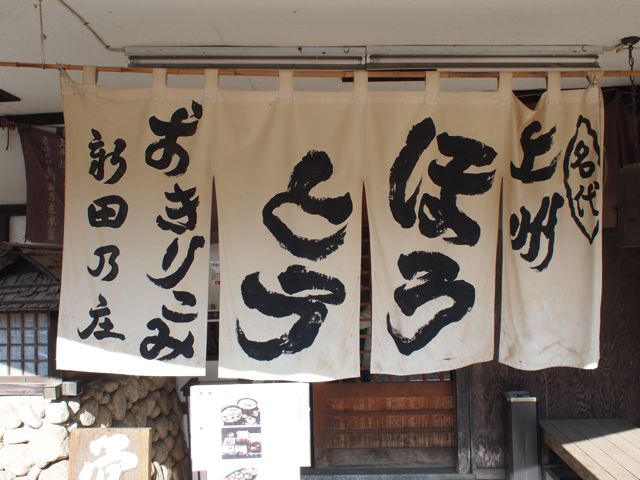 名代
上州
ほう
とう
おきりこみ
新田乃庄